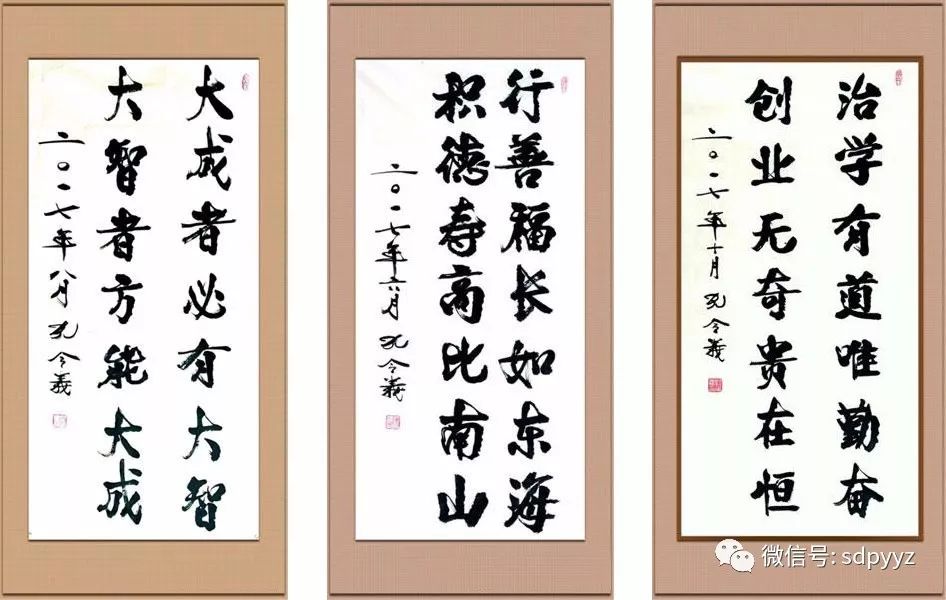 大成者必有大智
大智者方能大成
二〇一七年八月 孔令義
行善福长如东海
积德寿高比南山
二〇一七年六月 孔令義
治学有道唯勤奋
创业无奇贵在恒
二〇一七年十月 孔令義
微信号: sdpyyz